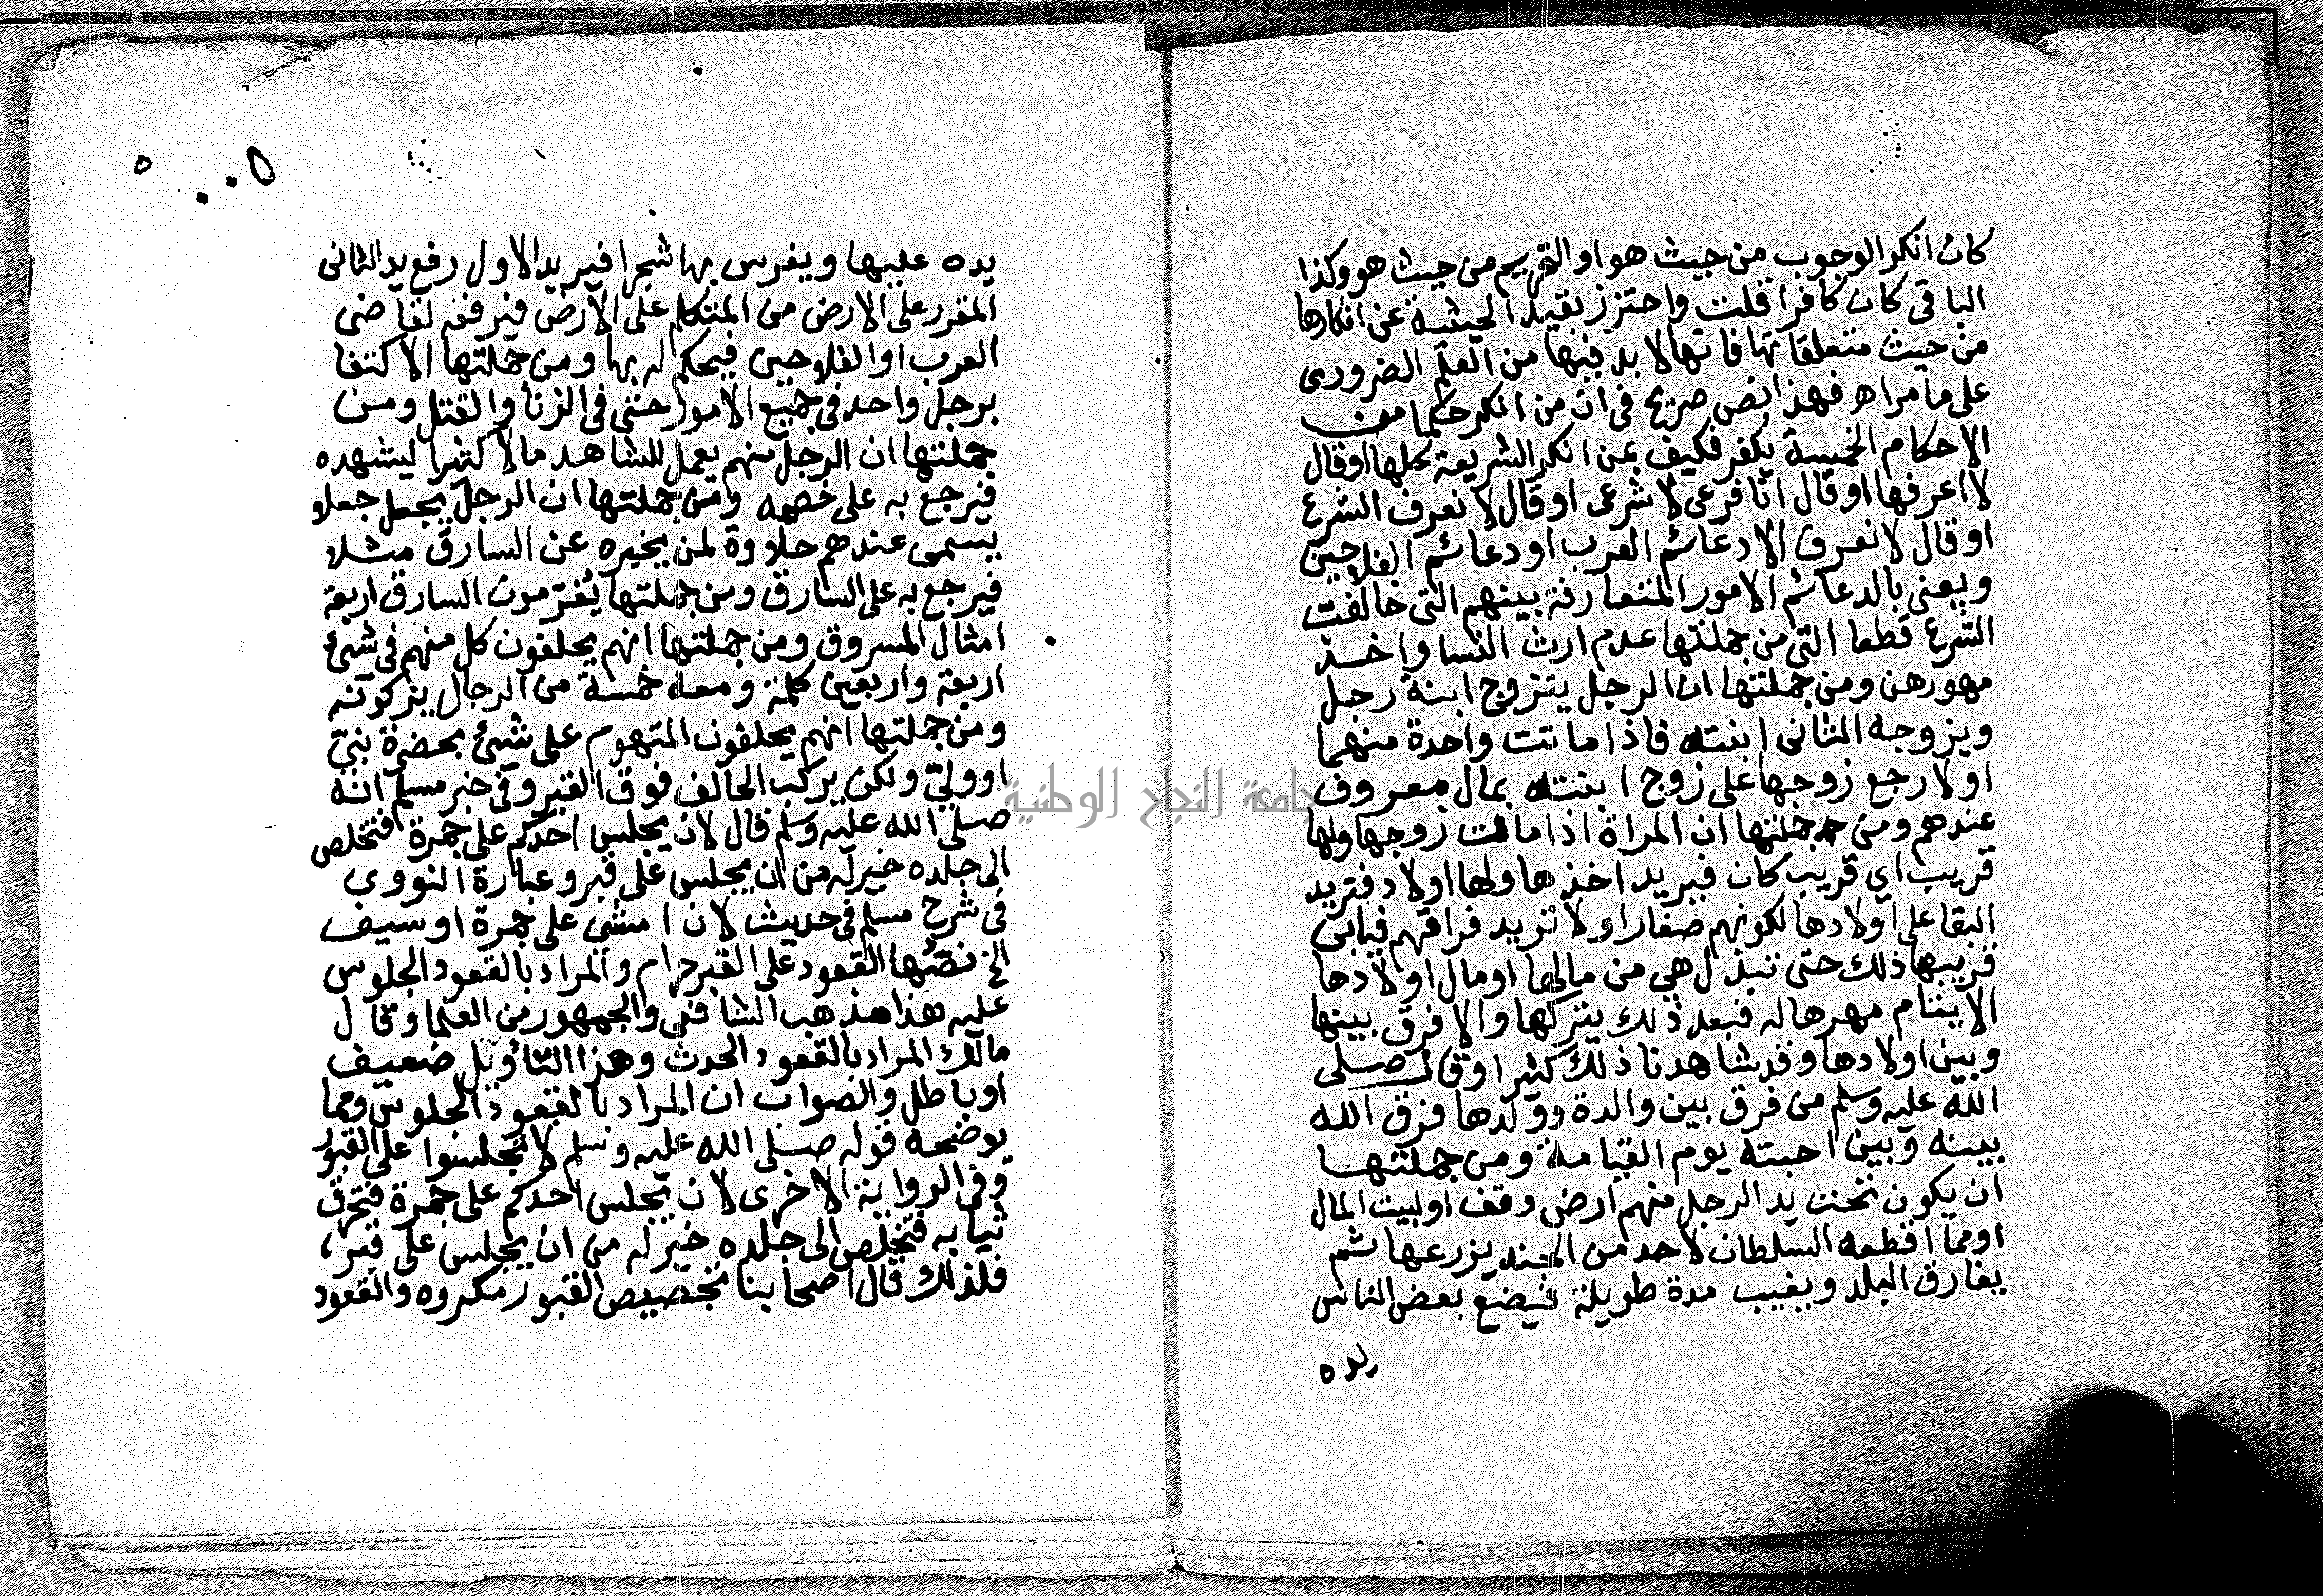 كان انكر الوجوب من حيث هو او التحريم من حيث هو وكذا
الباقي كان كافرا قلت واحترز بقيد الحيثية عن انكارها
من حيث متعلقاتها فانها لا بد فيها من العلم الضروري
على ما مر اه فهذا نص صريح في ان من انكر حكما من
الاحكام الخمسة يكفر فكيف بمن انكر الشريعة كلها او قال
لا اعرفها او قال انا فرعى لا شرعى او قال لا نعرف الشرع
او قال لا نعرف الا دعائم العرب او دعائم الفلاحين
ويعنى بالدعائم الامور المتعارفة بينهم التى خالفت
الشرع قطعا التى من جملتها عدم ارث النسا واخذ
مهورهن ومن جملتها ان الرجل يتزوج ابنة رجل
ويزوجه الثانى ابنته فاذا ماتت واحدة منهما
او لا رجع زوجها على زوج ابنته بمال معروف
عندهم ومن جملتها ان المراة اذا مات زوجها ولها
قريب اي قريب كان فيريد اخذها ولها اولاد فتريد
البقا على اولادها لكونهم صغارا ولا تريد فراقهم فيابى
قريبها ذلك حتى تبذل هي من مالها او مال اولادها
الايتام مهرها له فبعد ذلك يتركها والا فرق بينها
وبين اولادها وقد شاهدنا ذلك كثيرا وقال صلى
الله عليه وسلم من فرق بين والدة وولدها فرق الله
بينه وبين احبته يوم القيامة ومن جملتها
ان يكون تحت يد الرجل منهم ارض وقف او لبيت المال
او مما اقطعه السلطان لاحد من الجند يزرعها ثم
يفارق البلد ويغيب مدة طويلة فيضع بعض الناس
يده
٥
٥
يده عليها ويغرس بها شجرا فيريد الاول رفع يد الثانى
المقرر على الارض من المتكلم على الارض فيرفعه لقاضى
العرب او الفلاحين فيحكم له بها ومن جملتها الاكتفا
برجل واحد في جميع الامور حتى في الزنا والقتل ومن
جملتها ان الرجل منهم يعمل للشاهد مالا كثيرا ليشهده
فيرجع به على خصمه ومن جملتها ان الرجل يجعل جعلا
يسمى عندهم حلاوة لمن يخبره عن السارق مثلا
فيرجع به على السارق ومن جملتها يُغرّمون السارق اربعة
امثال المسروق ومن جملتها انهم يحلفون كل منهم في شئ
اربعة واربعين كلمة ومعه خمسة من الرجال يزكونه
ومن جملتها انهم يحلفون المتهوم على شئ بحضرة نبيّ
او وليّ ولكن يركب الحالف فوق القبر وفي خبر مسلم انه
صلى الله عليه وسلم قال لان يجلس احدكم على جمرة فتخلص
الى جلده خير له من ان يجلس على قبر وعبارة النووي
في شرح مسلم في حديث لان امشي على جمرة او سيف
الخ نصُّها القعود على القبر حرام والمراد بالقعود الجلوس
عليه هذا مذهب الشافعي والجمهور من العلما وقال
مالك المراد بالقعود الحدث وهذا التأويل ضعيف
او باطل والصواب ان المراد بالقعود الجلوس ومما
يوضحه قوله صلى الله عليه وسلم لا تجلسوا على القبور
وفي الرواية الاخرى لان يجلس احدكم على جمرة فتحرق
ثيابه فتخلص الى جلده خير له من ان يجلس على قبر،
فلذلك قال اصحابنا تجصيص القبور مكروه والقعود
جامعة النجاح الوطنية